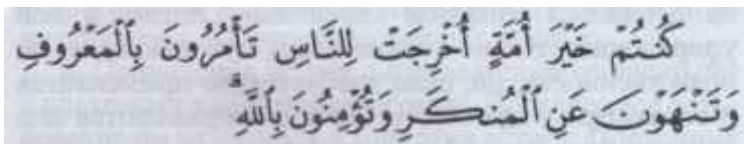 كُنتُمْ خَيْرَ أُمَّةٍ أُخْرِجَتْ لِلنَّاسِ تَأْمُرُونَ بِٱلْمَعْرُوفِ
وَتَنْهَوْنَ عَنِ ٱلْمُنكَرِ وَتُؤْمِنُونَ بِٱللَّهِ ۗ